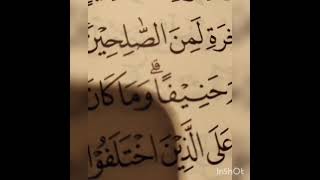 خِرَةِ لَمِنَ الصّٰلِحِيْنَ
حَنِيْفًا ۗ وَمَا كَانَ
عَلَى الَّذِيْنَ اخْتَلَفُوْا
InShOt